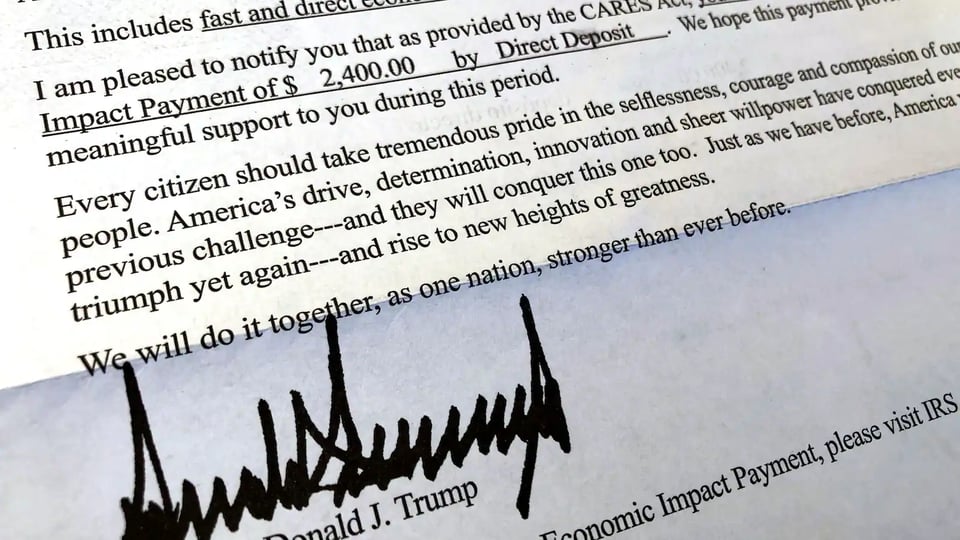 This includes fast and direct
I am pleased to notify you that as provided by the CARES Act,
Impact Payment of $ 2,400.00 by Direct Deposit . We hope this payment
meaningful support to you during this period.
Every citizen should take tremendous pride in the selflessness, courage and compassion of our
people. America’s drive, determination, innovation and sheer willpower have conquered
previous challenge---and they will conquer this one too. Just as we have before, America
triumph yet again---and rise to new heights of greatness.
We will do it together, as one nation, stronger than ever before.
Donald J. Trump
Economic Impact Payment, please visit IRS